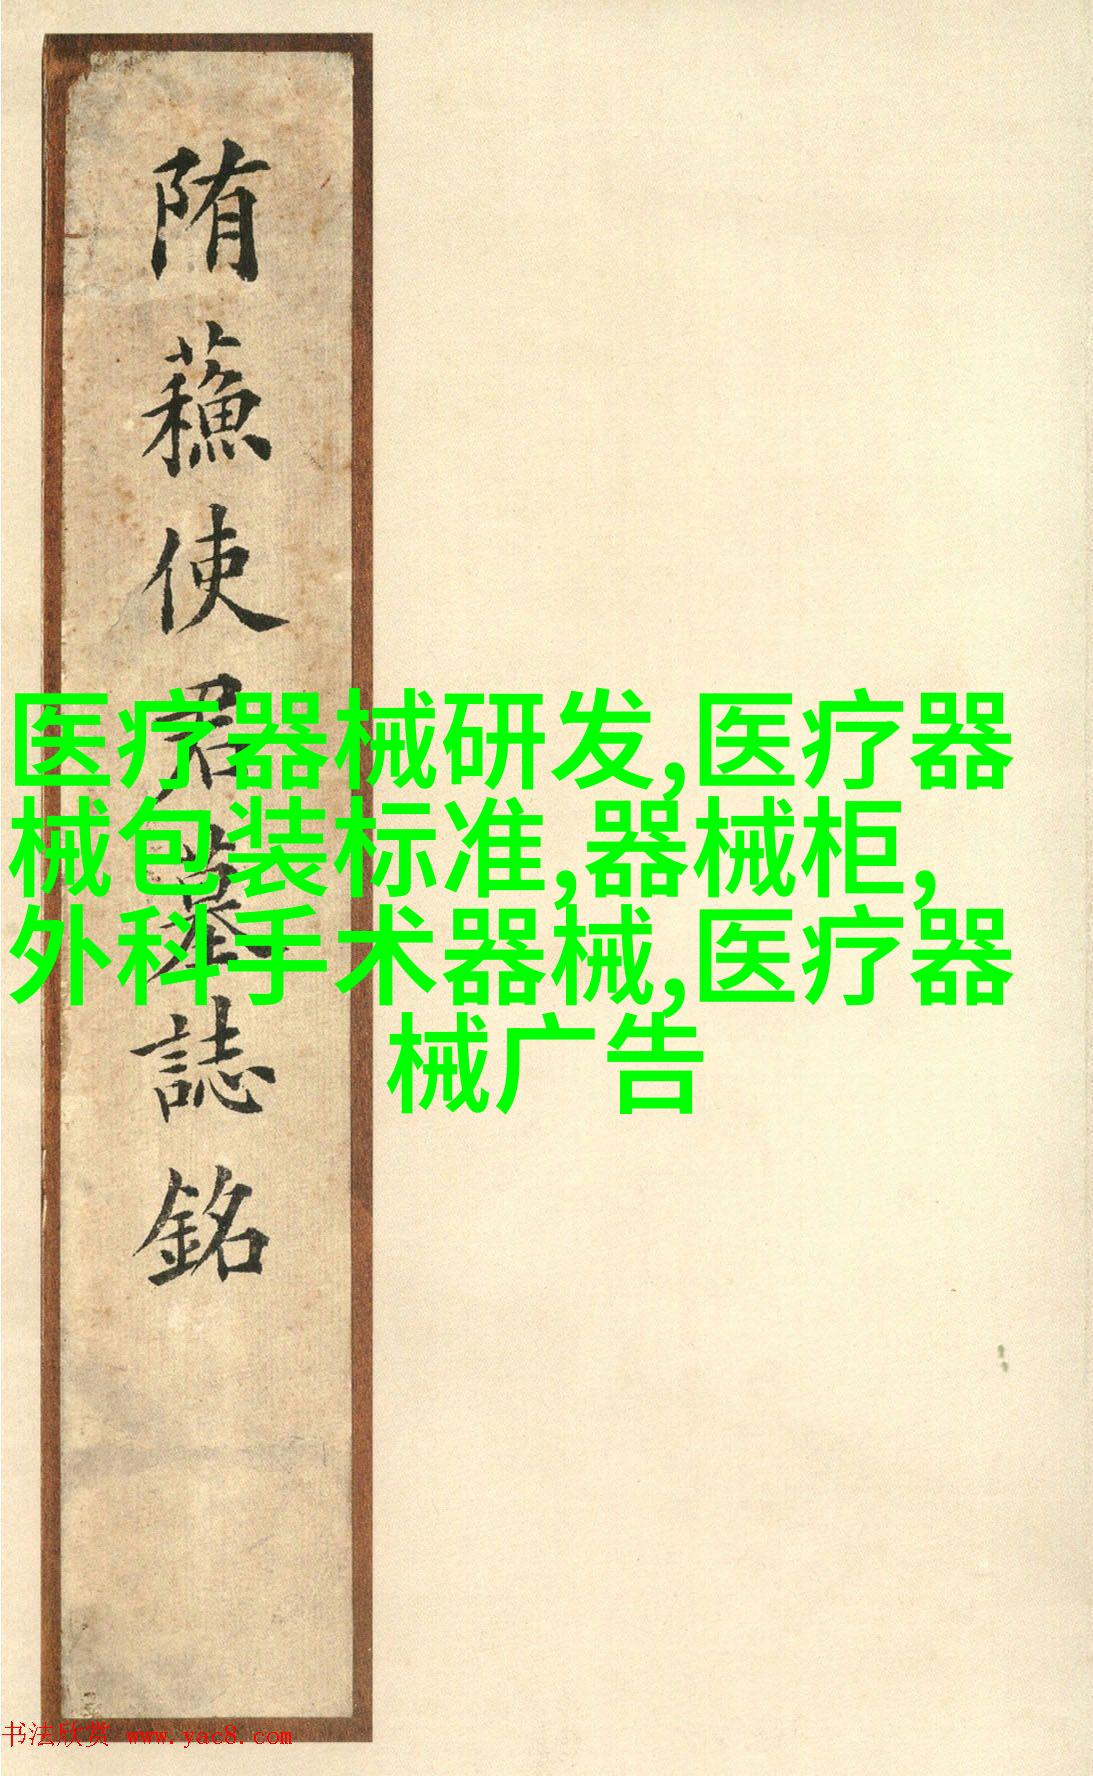 陏蘓使君墓誌銘
医疗器械研发,医疗器
械包装标准,器械柜,
外科手术器械,医疗器
械广告
书法欣赏 www.yac8.com